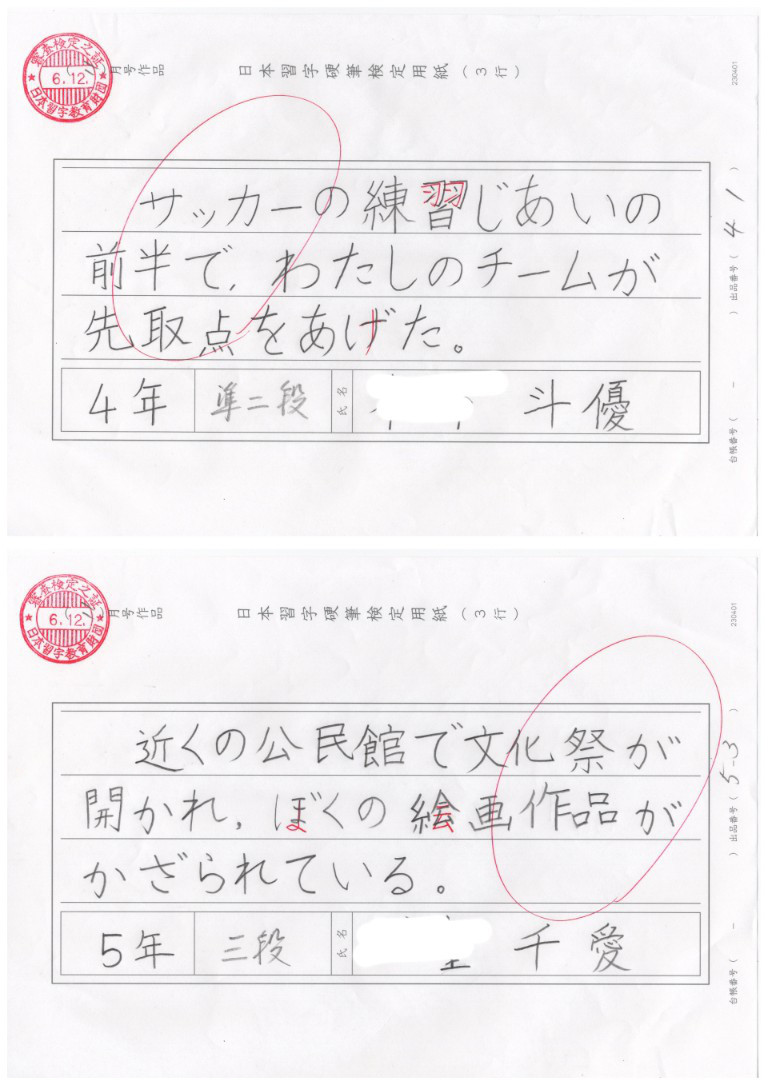 審査検定之証
6.12.
日本習字教育財団
月号作品
日本習字硬筆検定用紙（3行）
230401
サッカーの練習じあいの
前半で，わたしのチームが
先取点をあげた。
4年
準二段
氏名
斗優
出品番号（ 41 ）
台帳番号（ - ）
審査検定之証
6.12.
日本習字教育財団
月号作品
日本習字硬筆検定用紙（3行）
230401
近くの公民館で文化祭が
開かれ，ぼくの絵画作品が
かざられている。
5年
三段
氏名
千愛
出品番号（ 5-3 ）
台帳番号（ - ）